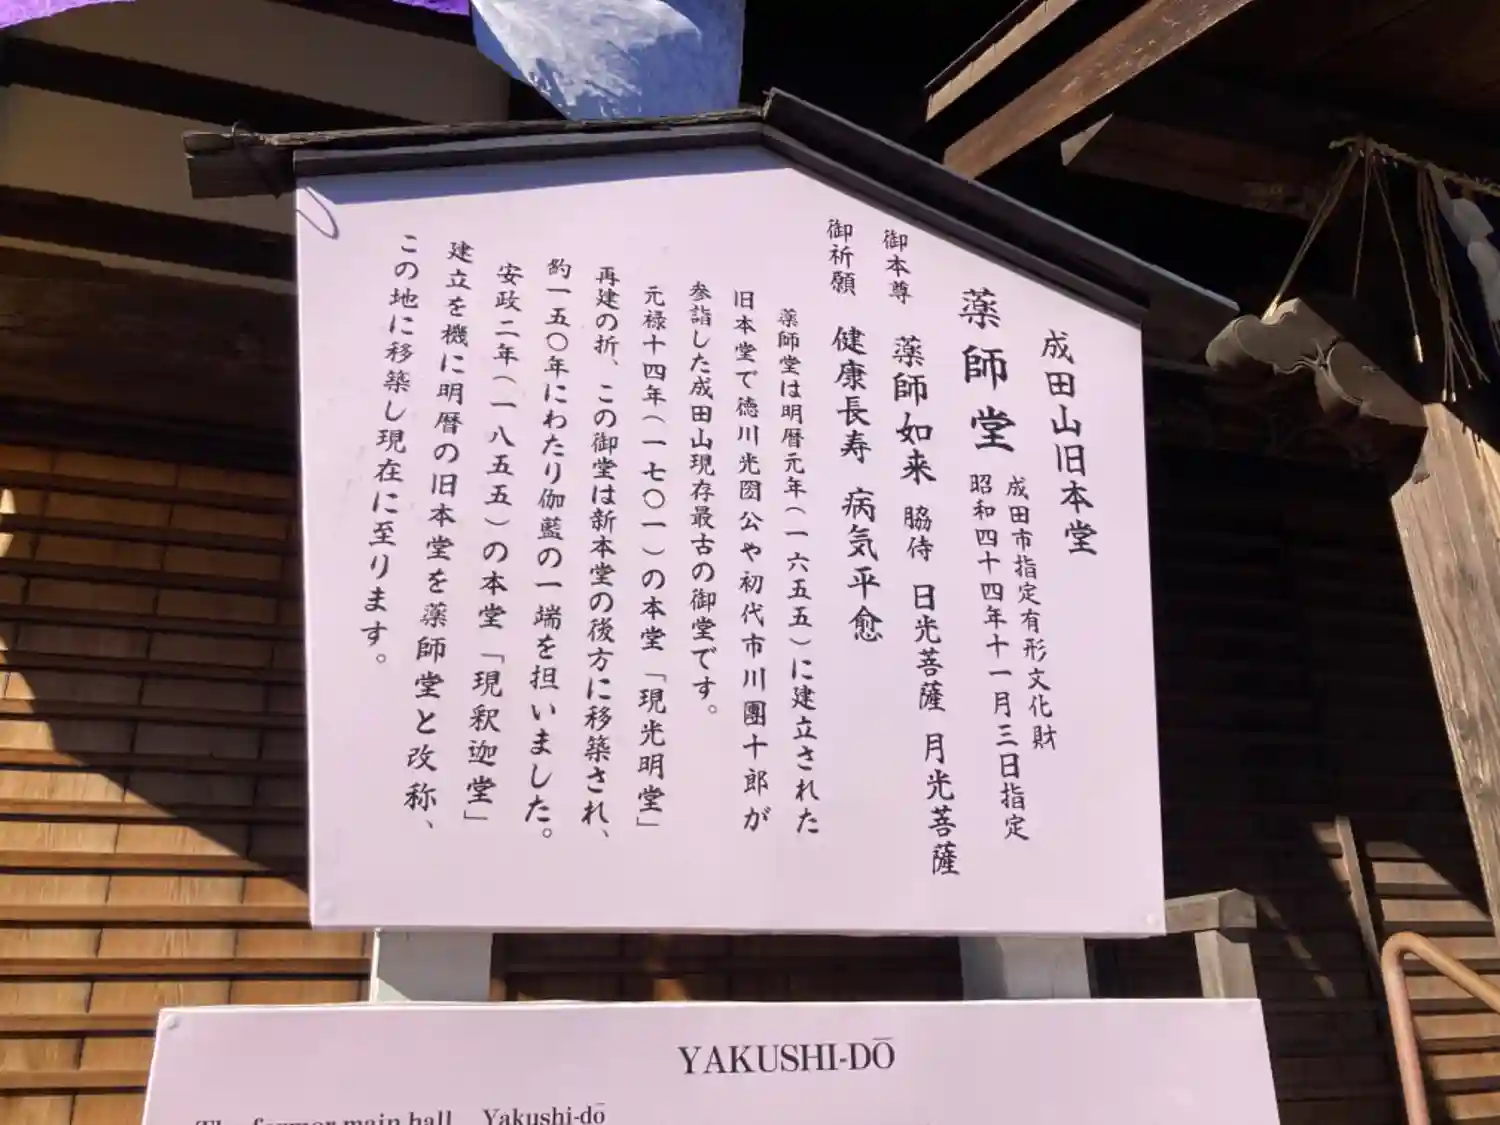 成田山旧本堂
薬師堂
成田市指定有形文化財
昭和四十四年十一月三日指定
御本尊 薬師如来 脇侍 日光菩薩 月光菩薩
御祈願 健康長寿 病気平愈
薬師堂は明暦元年(一六五五)に建立された
旧本堂で徳川光圀公や初代市川團十郎が
参詣した成田山現存最古の御堂です。
元禄十四年(一七〇一)の本堂「現光明堂」
再建の折、この御堂は新本堂の後方に移築され、
約一五〇年にわたり伽藍の一端を担いました。
安政二年(一八五五)の本堂「現釈迦堂」
建立を機に明暦の旧本堂を薬師堂と改称、
この地に移築し現在に至ります。
YAKUSHI-DŌ
The former main hall Yakushi-dō